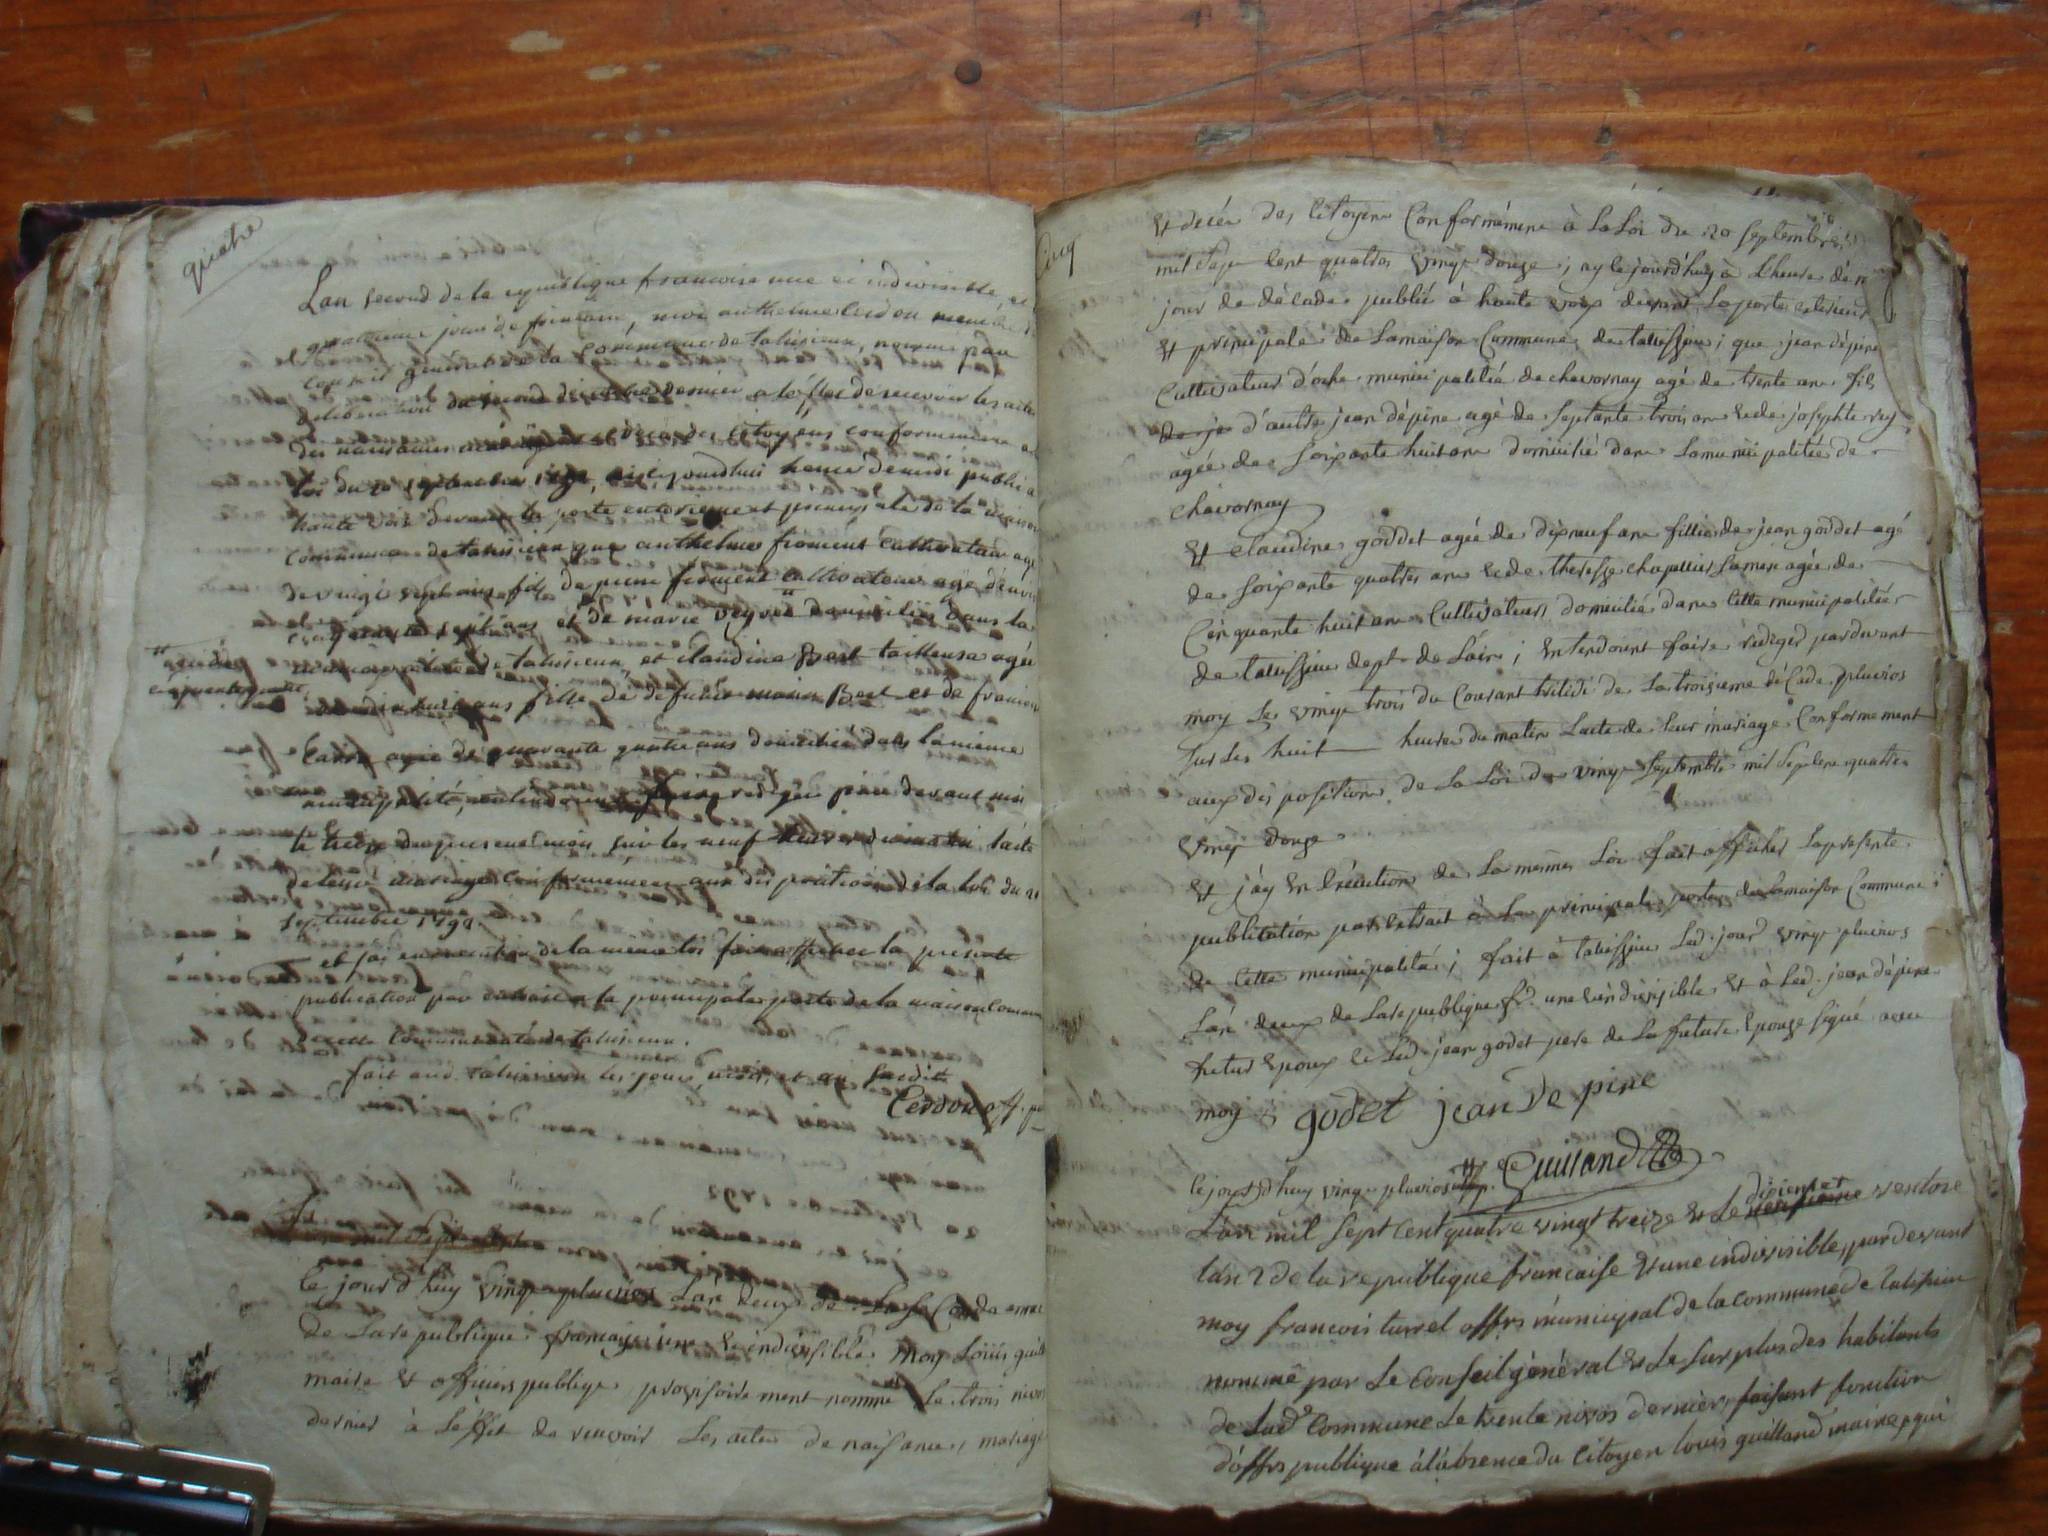 quatre
Lan second de la republique francoise une et indivisible, et
quatrieme jour de frimaire, moi anthelme Cerdon membre
conseil general de la commune de talissieux, nommé par
deliberation du second dernier a leffet de recevoir les actes
des naissances mariages et deces des citoyens conformement a
loi du 20 septembre 1792, ai cejourdhui heure de midi publié a
haute voix devant la porte exterieure et principale de la maison
commune de talissieux que anthelme froment cultivateur agé
de vingt sept ans fils de pierre froment cultivateur agé d'envi
cinquante sept ans et de marie veyret domiciliés dans la
municipalité de talissieux, et claudine Best tailleuse agée
de dix huit ans fille de defunt Best et de francoise
agée de quarante quatre ans domiciliée dans la meme
municipalité, entendent faire rediger par devant moi
le treize du present mois sur les neuf heures du matin lacte
de leur mariage conformement aux dispositions de la loi du 20
septembre 1792
et jai en execution de la meme loi fait afficher la presente
publication par extrait a la principale porte de la maison commune
de cette communauté de talissieux.
fait aud. talissieux les jour, mois, et an susdits
Cerdon off. p
le jourd'huy vingt pluvios L'an deux de
de La republique francayse une & indivisible moy Louis guill
maire & officiers publique provisoirement nommé Le trois nivos
dernier à L'effet de recevoir Les actes de naissance, mariage
Cinq
& décéa des Citoyens Conformément à La Loi du 20 septembre
mil sept Cent quattre vingt douze; ay le jourd'huy à L'heure de
jour de décade publié à haute voix devant La porte exterieur
& principale de La maison Commune de talissieu; que jean dépine
Cultivateur d'oche municipalité de chavornay agé de trente ans fils
de je d'autre jean dépine agé de septante trois ans & de josephte rey
agée de soixante huit ans domicilié dans La municipalitée de
chavornay
& Claudine goddet agée de dixneuf ans fillie de jean goddet agé
de soixante quattre ans & de theresze chapellier sa mere agée de
Cinquante huit ans Cultivateurs domicilié dans Cette municipalitée
de talissieu dept. de L'ain; Entendent faire rediger pardevant
moy Le vingt trois du Courant tridi de La troisieme décade pluvios
sur Les huit heures du matin L'acte de Leur mariage Conformement
aux dispositions de La Loi du vingt septembre mil sept Cent quattre
vingt douze
& j'ay En Exécution de La mesme Loi fait afficher La presente
publication par Extrait à La principale porte de La maison Commune
de Cette municipalité; fait à talissieu Led. jour vingt pluvios
L'an deux de La republique fr. une & indivisible & à Led. jean dépine
futur Epoux & Led. jean godet pere de La future Epouze signé avec
moy
godet jean de pine
Guilland
le jourd'huy vingt pluvios
L'an mil sept cent quatre vingt treize & Le dixieme ventose
l'an 2 de la republique francaise & une indivisible, pardevant
moy francois turrel offrs municipal de la commune de talissieu
nommé par Le Conseil géneral & Le surplus des habitants
de Lad. Commune Le trente nivos dernier, faisant fonction
d'offrs publique à l'absence du Citoyen louis guilland maire, qui